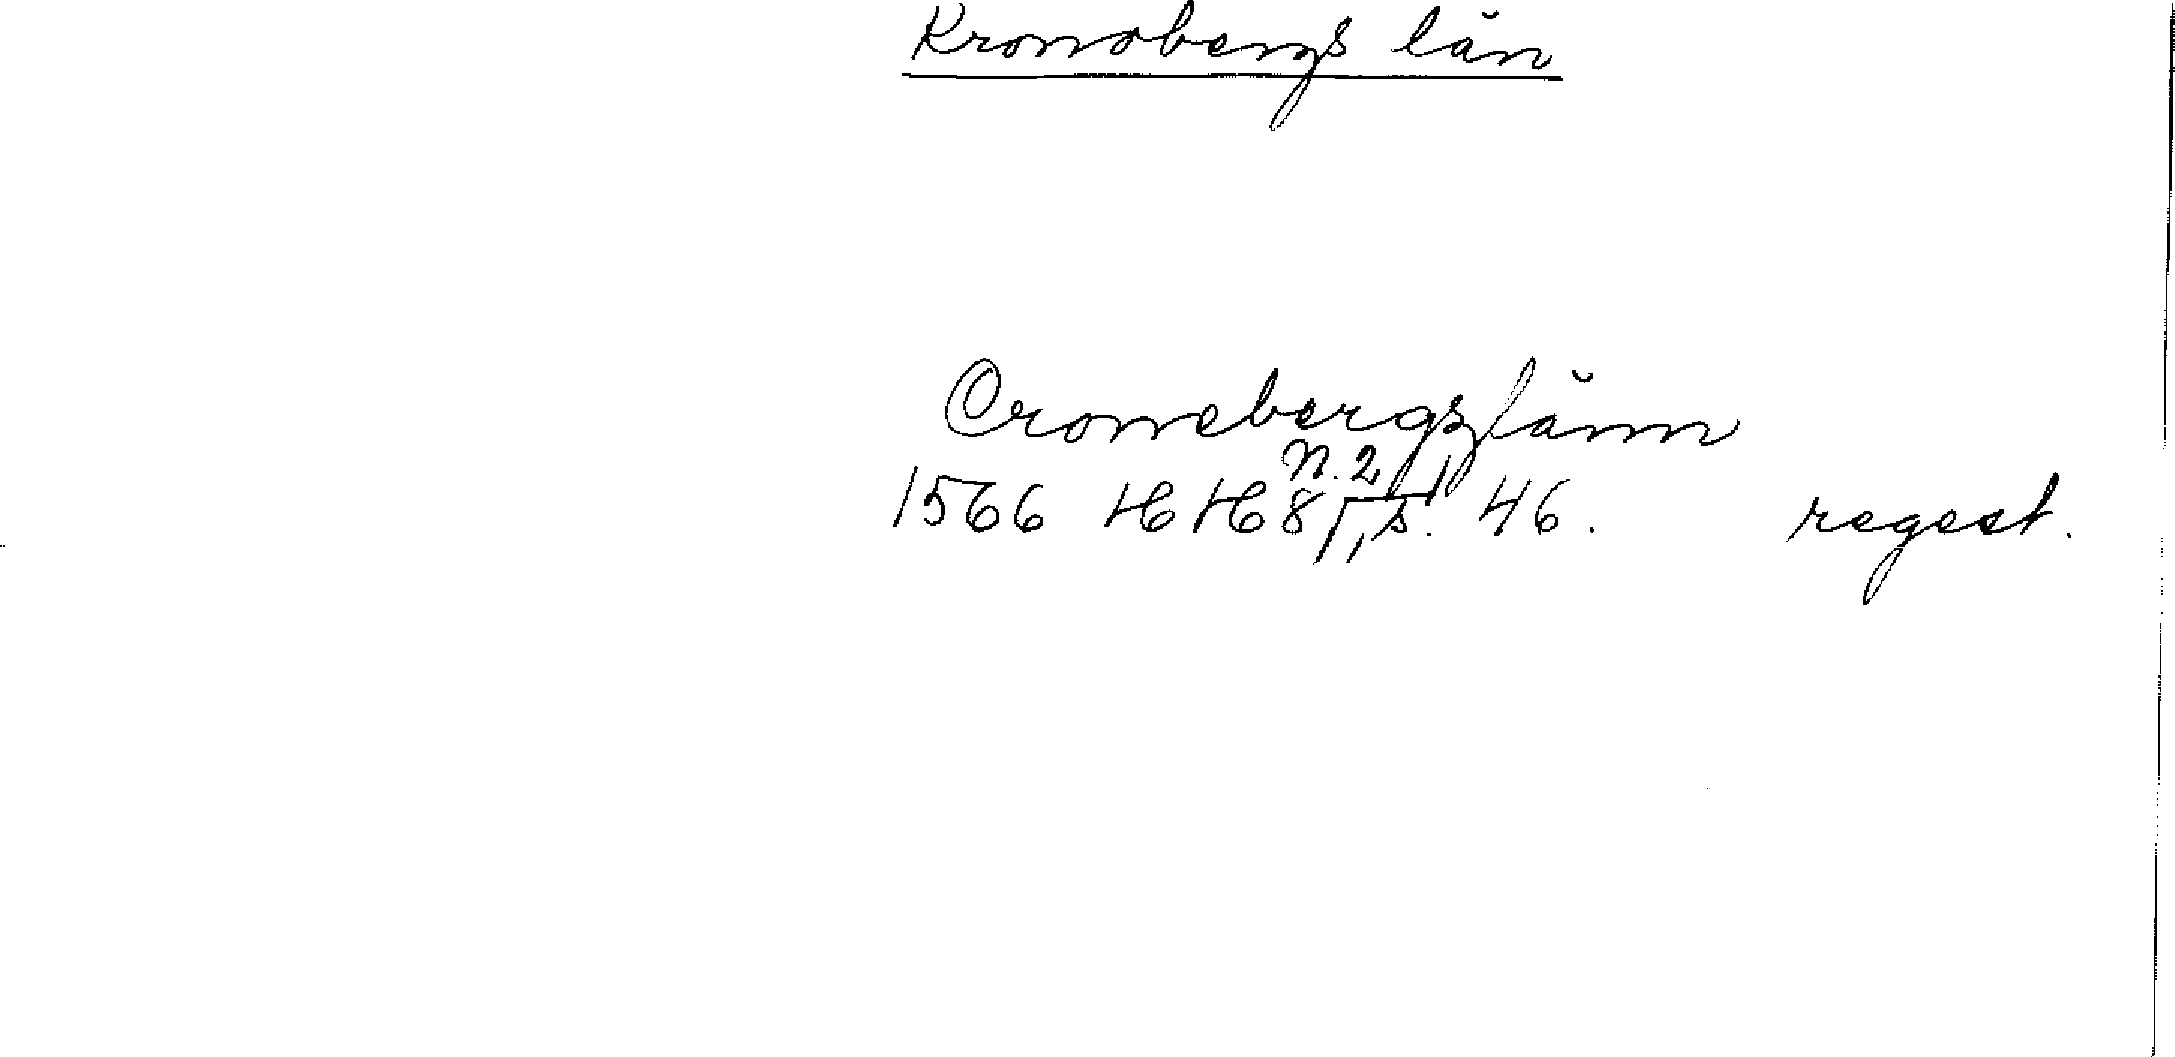 Kronobergs län
Cronebergzlänn
1566 HH 8 n. 2, s. 46. regest.